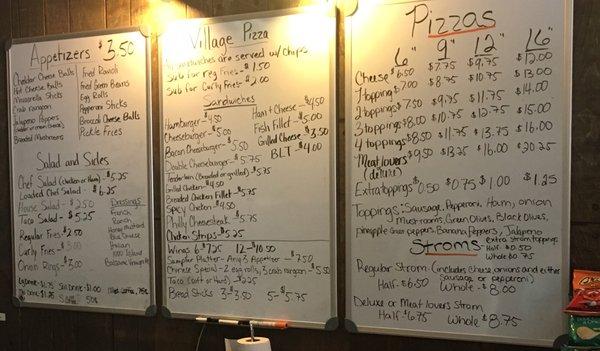 Appetizers $3.50
Cheddar Cheese Balls
Hot Cheese Balls
Mozzarella Sticks
Crab rangoon
Jalapeno Poppers
(cheddar or cream cheese)
Breaded Mushrooms
Fried Ravioli
Fried Green Beans
Egg Rolls
Pepperoni Sticks
Broccoli Cheese Balls
Pickle Fries
Salad and Sides
Chef Salad (chicken or ham) - $5.25
Loaded Chef Salad - $6.25
House Salad - $2.50
Taco Salad - $5.25
Regular Fries - $2.50
Curly Fries - $3.00
Onion Rings - $3.00
Dressings
French
Ranch
Honey Mustard
Blue Cheese
Italian
1000 Island
Balsamic Vinaigrette
Village Pizza
All sandwiches are served w/ chips.
Sub for reg Fries - $1.50
Sub for Curly Fries - $2.00
Sandwiches
Hamburger - $4.50
Cheeseburger - $5.00
Bacon Cheeseburger - $5.50
Double Cheeseburger - $5.75
Tenderloin (breaded or grilled) - $5.75
Grilled Chicken - $4.50
Breaded Chicken Fillet - $5.75
Spicy Chicken - $4.50
Philly Cheesesteak - $5.75
Chicken Strips - $5.25
Ham + Cheese - $4.50
Fish Fillet - $5.00
Grilled Cheese - $3.50
BLT - $4.00
Wings 6 - 7.25 12 - 10.50
Sampler Platter - Any 3 Appetizer - $7.50
Chinese Special - 2 egg rolls, 3 crab rangoon - $5.50
Taco (soft or hard) - $2.25
Bread Sticks 3 - 3.50 5 - 5.75
Pizzas
6" 9" 12" 16"
Cheese $6.50 $7.75 $9.75 $12.00
1 topping $7.00 $8.75 $10.75 $13.00
2 toppings $7.50 $9.75 $11.75 $14.00
3 toppings $8.00 $10.75 $12.75 $15.00
4 toppings $8.50 $11.75 $13.75 $16.00
Meat lovers $9.50 $13.25 $16.00 $20.25
(deluxe)
Extra toppings $0.50 $0.75 $1.00 $1.25
Toppings: Sausage, Pepperoni, Ham, onion
Mushrooms, Green Olives, Black Olives,
pineapple Green peppers, Banana Peppers, Jalapeno
Stroms
extra strom toppings
Half $0.50
Whole $0.75
Regular Strom (includes cheese, onions and either
sausage or pepperoni)
Half - $6.50 Whole - $8.00
Deluxe or Meat lovers Strom
Half - $6.75 Whole - $8.75